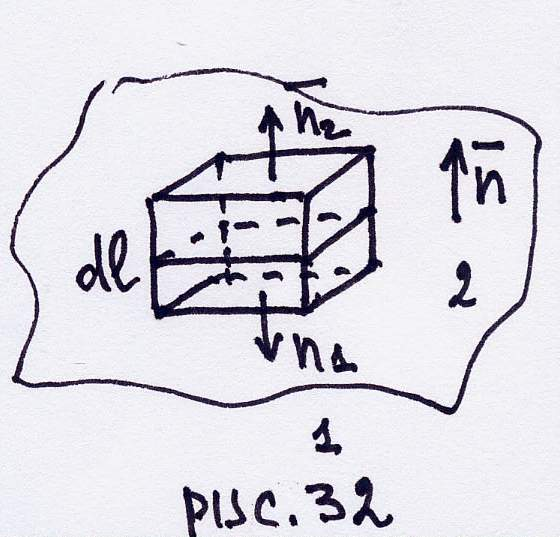 n̄₂
n̄
dl
2
n₁
1
рис. 32